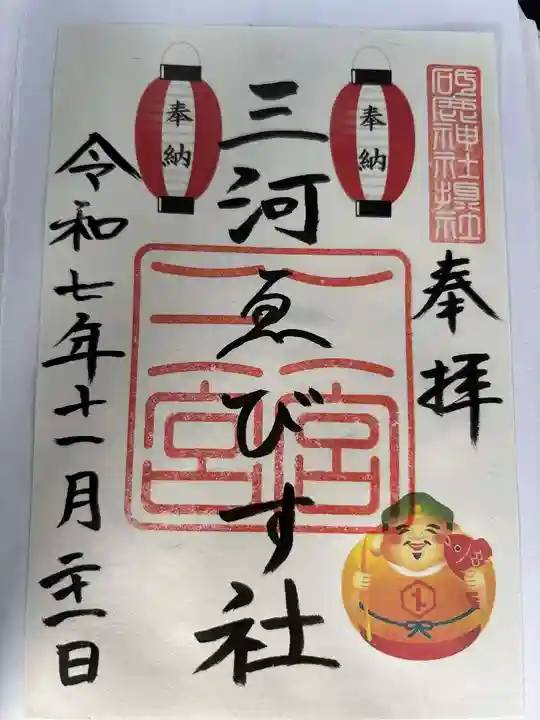 砥鹿神社摂社
奉拝
奉納
奉納
三河ゑびす社
三宮
二宮
令和七年十一月二十一日